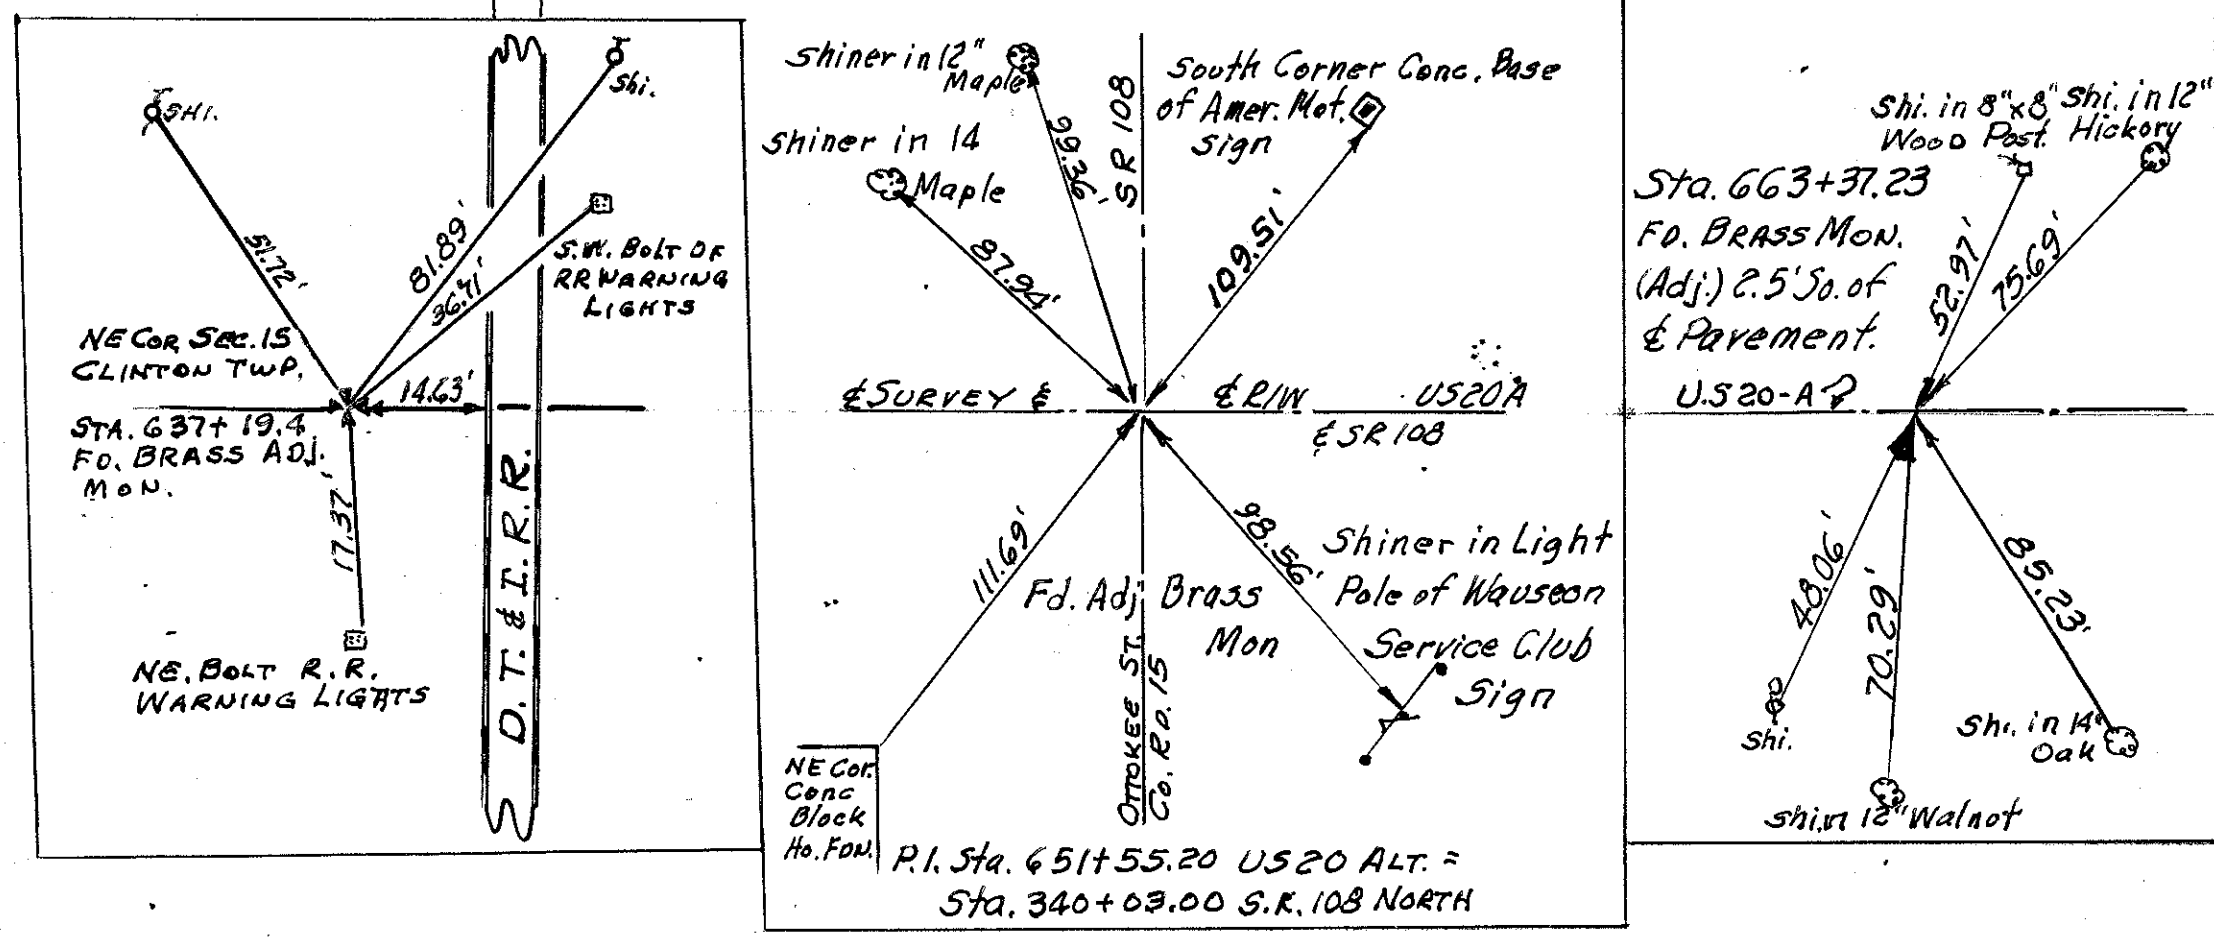 SHI.
Shi.
51.72'
81.89'
36.71'
S.W. BOLT OF
RR WARNING
LIGHTS
NE COR SEC. 15
CLINTON TWP.
14.63'
STA. 637+19.4
FD. BRASS ADJ.
MON.
17.37'
D. T. & I. R.R.
NE. BOLT R.R.
WARNING LIGHTS
Shiner in 12"
Maple
Shiner in 14
Maple
99.36'
87.94'
SR 108
South Corner Conc. Base
of Amer. Mot.
Sign
109.51'
℄ SURVEY &
℄ R/W
US20A
℄ SR 108
111.69'
98.56'
Fd. Adj. Brass
Mon
Shiner in Light
Pole of Wauseon
Service Club
Sign
OTTOKEE ST.
CO. RD. 15
NE Cor.
Conc
Block
Ho. FDN.
P.I. Sta. 651+55.20 US20 ALT. =
Sta. 340+03.00 S.R. 108 NORTH
Shi. in 8"x8"
Wood Post
Shi. in 12"
Hickory
Sta. 663+37.23
FD. BRASS MON.
(Adj.) 2.5' So. of
℄ Pavement.
52.97'
75.69'
U.S 20-A
48.06'
70.29'
85.23'
Shi.
Shi. in 14"
Oak
Shi. in 12" Walnot